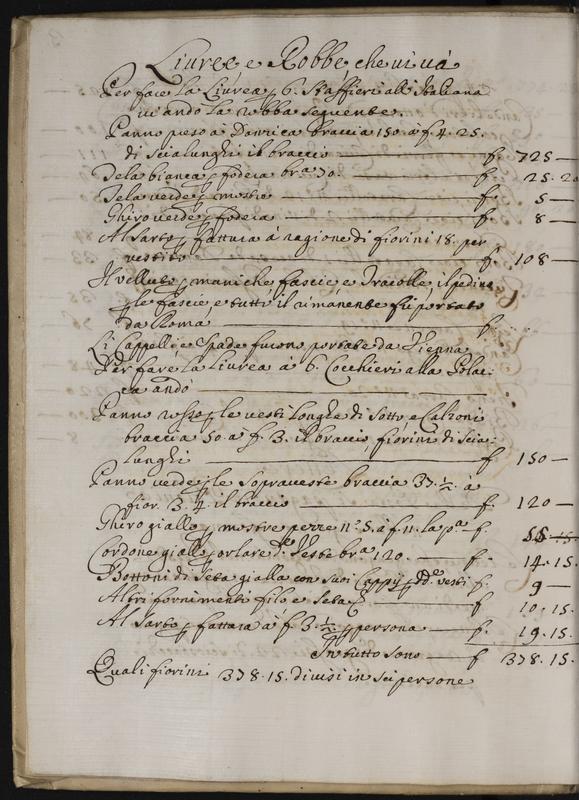 Liuree e Robbe che ui uà
Per fare La Liurea p 6. Staffieri all Italiana
ui andò La robba seguente.
Panno peso a Danzica braccia 150. à f. 4. 25.
di Scialunghi il braccio — f. 725 —
Tela bianca p fodera bra 70. — f. 25. 20
Tela verde p mostre — f. 5 —
Ghiro verde p fodera — f. 8 —
Al Sarto p fattura à ragione di fiorini 18. per
vestito — f. 108 —
Il velluto p maniche fascie e Tracolle, il
p le fascie, e tutti il rimanente fu portato
da Roma — f.
Li Cappelli e Spade furono portate da Vienna
Per fare La Liurea à 6. Cocchieri alla Polac-
ca andò
Panno rosso p le vesti Longhe di sotto e Calzoni
braccia 50. à f. 3. il braccio, fiorini di Scia-
lunghi — f. 150 —
Panno verde p le Sopraveste braccia 37. 1/2. à
fior. 3. 4. il braccio — f. 120 —
Ghiro giallo p mostre pezze n.o 5. à f. 11. la pa — f. 55
Cordone giallo p orlare de Veste bra 120. — f. 14. 15.
Bottoni di Seta gialla con suoi Cappij p de vesti f. 9 —
Altri fornimenti filo e Seta — f. 10. 15.
Al Sarto p fattura à f 3. 1/2 p persona — f. 19. 15.
In tutto sono — f 378. 15.
Quali fiorini 378. 15. divisi in sei persone